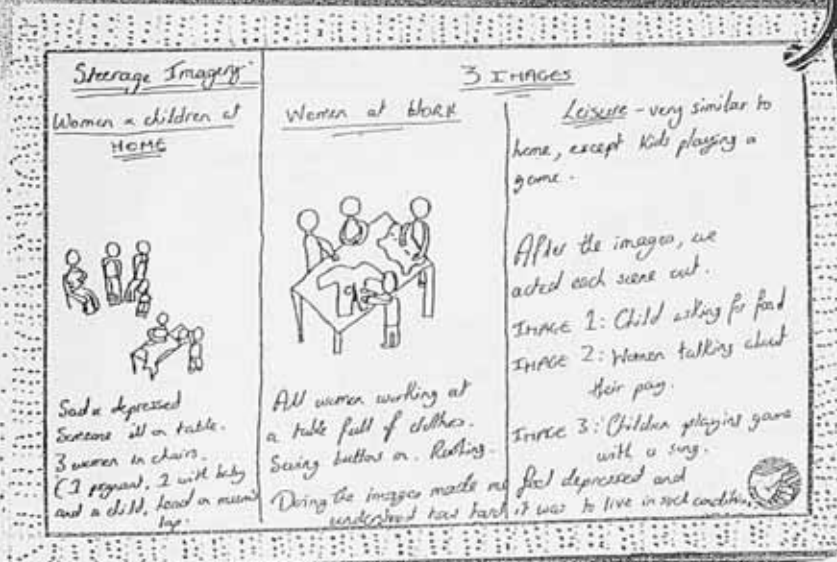 Steerage Imagery -
Women & children at
HOME
Sad & depressed
Someone ill on table.
3 women in chairs.
(1 pregnant, 1 with baby
and a child, head on mum's
lap.
3 IMAGES
Women at WORK
All women working at
a table full of clothes.
Sewing buttons on. Rushing.
Doing the images made me
understand how hard
Leisure - very similar to
home, except kids playing a
game.
After the images, we
acted each scene out.
IMAGE 1: Child asking for food
IMAGE 2: Women talking about
their pay.
IMAGE 3: Children playing game
with a song.
feel depressed and
it was to live in such condition,